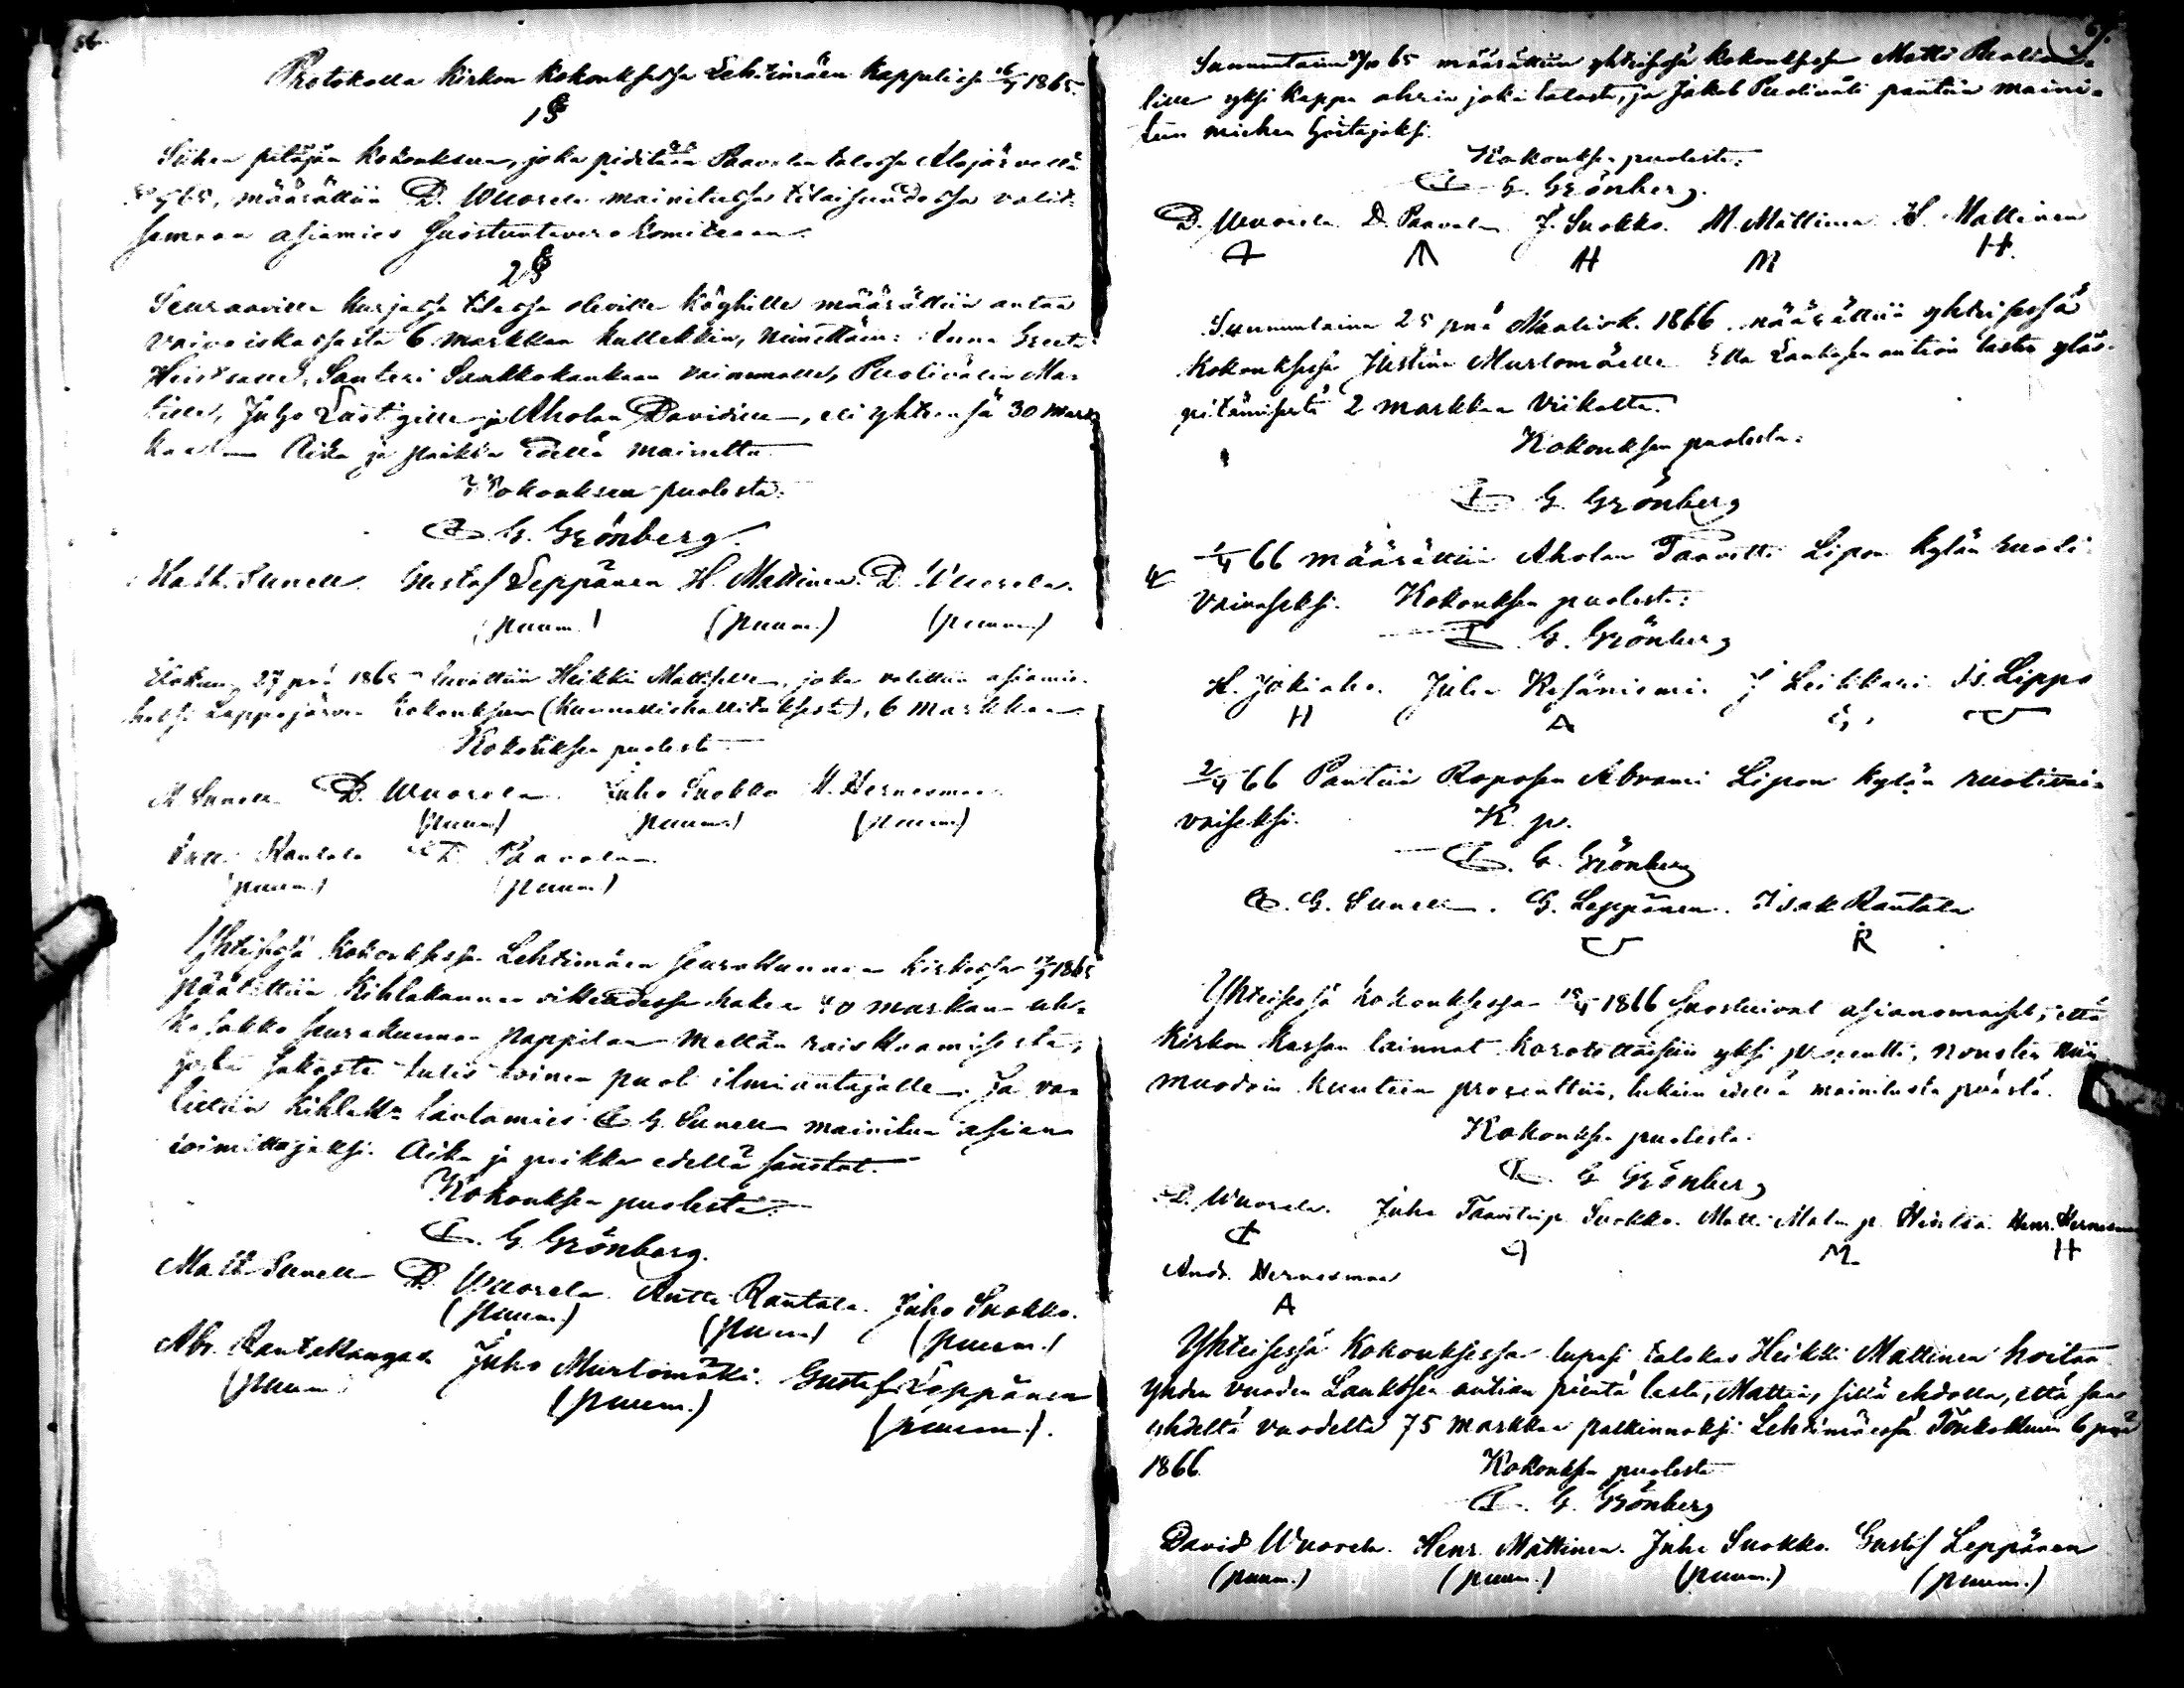 Protokolla Kirkon kokouksessa Lehtimäen Kappelissa 1865.
1 §
Siihen pitäjän kokouksen, joka pidetään Paavolan talossa Alajärvellä
65, määrättiin D. Wuorela mainitussa tilaisuudessa valit-
semaan asiamies suostuntavero komiteaan.
2 §
Seuraaville kurjassa tilassa oleville köyhille määrättiin antaa
vaivaiskassasta 6 markkaa kullekkin, nimittäin: Anna Greeta
Santeri vaimmalle, Puolivälin Ma-
tille, Juho Lästigille ja Aholan Davidille, eli yhteensä 30 mark-
kaa. Aika ja paikka edellä mainittu.
Kokouksen puolesta:
G. Grönberg.
Math. Sunell. Gustaf Leppänen H. Mattinen. D. Wuorela.
(puum.) (puum.) (puum.)
Elokuu 27 pnä 1865 luvattiin Heikki Mattiselle, joka valittiin asiamie-
heksi Lappajärven kokouksen (kunnallishallituksesta), 6 markkaa
Kokouksen puolesta
M Sunell D. Wuorela. Juho Suokko H. Hernesmaa
(puum) (puum.) (puum)
Rantala D. Paavola
(puum.) (puum.)
Yhteisessä kokouksessa Lehtimäen seurakunnan kirkossa 1865
päätettiin Kihlakunnan oikeudessa hakea 40 markan uh-
ka sakko seurakunnan pappilan metsän raiskaamisesta,
josta sakosta tulis toinen puoli ilmiantajalle. Ja va-
littiin Kihlak. lautamies G. Sunell mainitun asian
toimittajaksi. Aika ja paikka edellä sanotut.
Kokouksen puolesta:
G. Grönberg.
Matt Sunell D. Wuorela. Antti Rantala. Juho Suokko.
(puum.) (puum) (puum.)
Abr. Rantakangas Juho Murtomäki. Gustaf Leppänen
(puum (puum.) (puum.).
67.
Sunnuntaina 65 määrättiin yhteisessä kokouksessa Matti Puolivä-
lille yksi kappa ohria joka talosta, ja Jakob Puoliväli pantiin maini-
tun miehen hoitajaksi.
Kokouksen puolesta:
G. Grönberg.
D. Wuorela. D. Paavola. J. Suokko. M. Mattinen H. Mattinen
H M H.
Sunnuntaina 25 pnä Maalisk. 1866. määrättiin yhteisessä
kokouksessa Justiina Murtomäelle lasta ylös-
pitämisestä 2 markkaa viikolta.
Kokouksen puolesta:
G. Grönberg
1/4 66 määrättiin Aholan Taavetti Lipon kylän ruoti
vaivaseksi. Kokouksen puolesta:
G. Grönberg
H. Jokiaho. Juha Kesäniemi. J Leikkari Is. Lippo
H A
2/4 66 Pantiin Roposen Abrami Lipon kylän ruotivai-
vaiseksi. K. p.
G. Grönberg
G. Sunell. G. Leppänen. Isak Rantala
R
Yhteisessä kokouksessa 1866 suostuivat asianomaiset, että
Kirkon kassan lainnat korotettaisiin yksi prosentti, nousten niin
muodoin kuuteen prosenttiin, lukien edellä mainitusta päästä.
Kokouksen puolesta.
G Grönberg
D. Wuorela. Juho Taavetinp. Suokko. Matti Matin p. Henr. Hernesmaa
M H
Andr. Hernesmaa
A
Yhteisessä Kokouksessa lupasi talokas Heikki Mattinen hoitaa
yhden vuoden pientä lasta, Mattia, sillä ehdolla, että saa
yhdeltä vuodelta 75 markkaa palkinnoksi. Lehtimäessä Toukokuun 6 pnä
1866. Kokouksen puolesta
G. Grönberg
David Wuorela. Henr. Mattinen. Juho Suokko. Gustaf Leppänen
(puum.) (puum.) (puum.) (puum.)